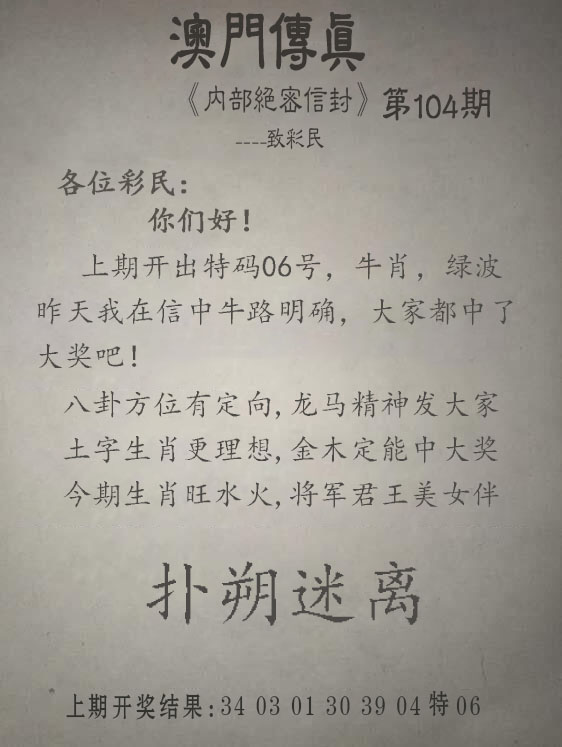 澳門傳眞
《内部絕密信封》第104期
----致彩民
各位彩民：
你们好！
上期开出特码06号，牛肖，绿波
昨天我在信中牛路明确，大家都中了
大奖吧！
八卦方位有定向,龙马精神发大家
土字生肖更理想,金木定能中大奖
今期生肖旺水火,将军君王美女伴
扑朔迷离
上期开奖结果:34 03 01 30 39 04 特 06